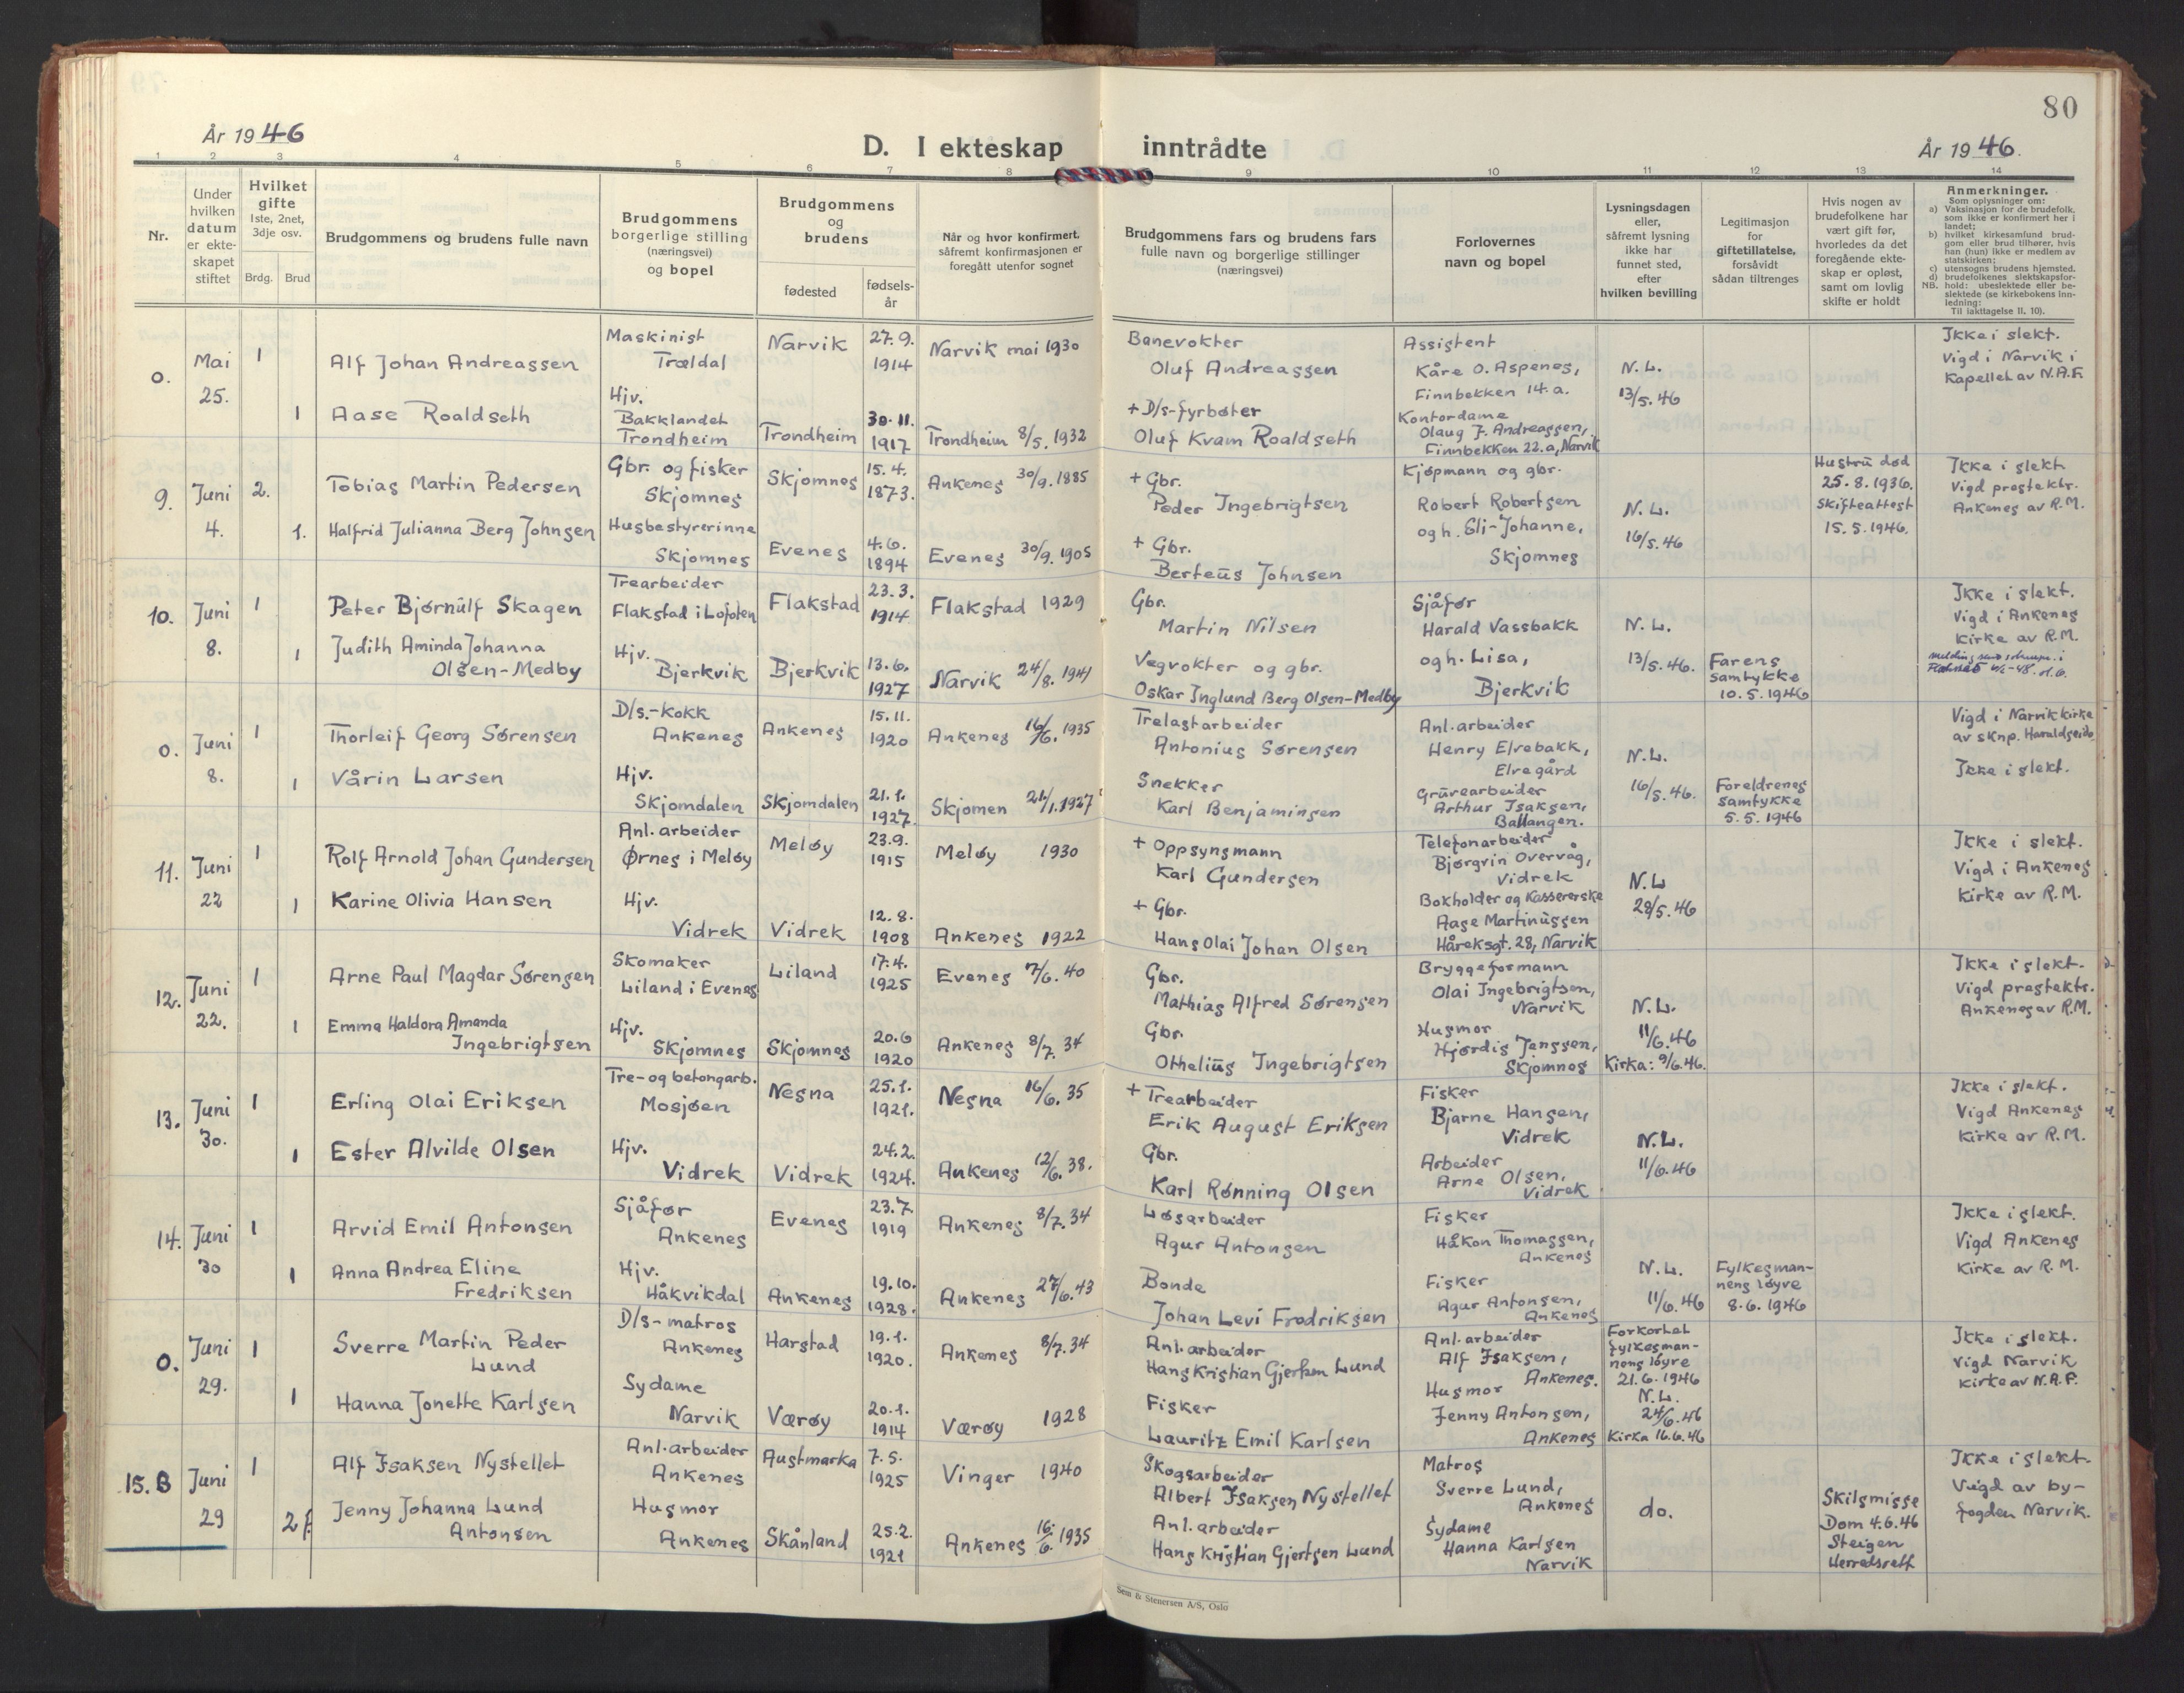 80
År 1946
D. I ekteskap inntrådte
År 1946.
1 2 3 4 5 6 7 8 9 10 11 12 13 14
Nr.
Under
hvilken
datum
er ekte-
skapet
stiftet
Hvilket
gifte
1ste, 2net,
3dje osv.
Brdg. Brud
Brudgommens og brudens fulle navn
Brudgommens
borgerlige stilling
(næringsvei)
og bopel
Brudgommens
og
brudens
fødested
fødsels-
år
Når og hvor konfirmert,
såfremt konfirmasjonen er
foregått utenfor sognet
Brudgommens fars og brudens fars
fulle navn og borgerlige stillinger
(næringsvei)
Forlovernes
navn og bopel
Lysningsdagen
eller,
såfremt lysning
ikke har
funnet sted,
efter
hvilken bevilling
Legitimasjon
for
giftetillatelse,
forsåvidt
sådan tiltrenges
Hvis nogen av
brudefolkene har
vært gift før,
hvorledes da det
foregående ekte-
skap er opløst,
samt om lovlig
skifte er holdt
Anmerkninger.
Som oplysninger om:
a) Vaksinasjon for de brudefolk,
som ikke er konfirmert her i
landet;
b) hvilket kirkesamlund brud-
gom eller brud tilhører, hvis
han (hun) ikke er medlem av
statskirken;
c) utensogns brudens hjemsted.
d) brudefolkenes slektskapsfor-
NB. hold: ubeslektede eller be-
slektede (se kirkebokens inn-
ledning:
Til iakttagelse II, 10).
0.
Mai
25.
1
Alf Johan Andreassen
Maskinist
Trældal
Narvik
27.9.
1914
Narvik mai 1930
Banevokter
Oluf Andreassen
Assistent
Kåre O. Aspenes,
Finnbekken 14.a.
N.L.
13/5.46
Ikke i slekt.
Vigd i Narvik i
Kapellet av N.A.F.
1
Aase Roaldseth
Hjv.
Bakklandet
Trondheim
Trondheim
30.11.
1917
Trondheim 8/5. 1932
+ D/s-fyrbøter
Oluf Kvam Roaldseth
Kontordame
Olaug J. Andreassen,
Finnbekken 22.a, Narvik
9.
Juni
4.
2.
Tobias Martin Pedersen
Gbr. og fisker
Skjomnes
Skjomnes
15.4.
1873.
Ankenes 30/9. 1885
+ Gbr.
Peder Ingebrigtsen
Kjøpmann og gbr.
Robert Robertsen
og h. Eli-Johanne,
Skjomnes
N.L.
16/5.46
Hustru død
25.8.1936.
Skifteattest
15.5.1946.
Ikke i slekt
Vigd prestektr.
Ankenes av R.M.
1.
Halfrid Julianna Berg Johnsen
Husbestyrerinne
Skjomnes
Evenes
4.6.
1894
Evenes 30/9. 1905
+ Gbr.
Berteus Johnsen
10.
Juni
8.
1
Peter Bjørnulf Skagen
Trearbeider
Flakstad i Lofoten
Flakstad
23.3.
1914
Flakstad 1929
Gbr.
Martin Nilsen
Sjåfør
Harald Vassbakk
og h. Lisa,
Bjerkvik
N.L.
13/5.46.
Farens
samtykke
10.5.1946
Ikke i slekt.
Vigd i Ankenes
Kirke av R.M.
1
Judith Aminda Johanna
Olsen-Medby
Hjv.
Bjerkvik
Bjerkvik
13.6.
1927
Narvik 24/8. 1941
Vegvokter og gbr.
Oskar Inglund Berg Olsen-Medby
0.
Juni
8.
1
Thorleif Georg Sørensen
D/s.-kokk
Ankenes
Ankenes
15.11.
1920
Ankenes 16/6. 1935
Trelastarbeider
Antonius Sørensen
Anl.arbeider
Henry Elvebakk,
Elvegård
N.L.
16/5.46.
Foreldrenes
samtykke
5.5.1946
Vigd i Narvik kirke
av sknp. Haraldseide
Ikke i slekt.
1
Vårin Larsen
Hjv.
Skjomdalen
Skjomdalen
21.1.
1927.
Skjomen 21/1.1927
Snekker
Karl Benjaminsen
Gruvearbeider
Arthur Isaksen,
Ballangen.
11.
Juni
22
1
Rolf Arnold Johan Gundersen
Anl.arbeider
Ørnes i Meløy
Meløy
23.9.
1915
Meløy 1930
+ Oppsynsmann
Karl Gundersen
Telefonarbeider
Bjørgvin Overvåg,
Vidrek
N.L
28/5.46
Ikke i slekt.
Vigd i Ankenes
Kirke av R.M.
1
Karine Olivia Hansen
Hjv.
Vidrek
Vidrek
12.8.
1908
Ankenes 1922
+ Gbr.
Hans Olai Johan Olsen
Bokholder og Kassererske
Aase Martinussen
Håreksgt. 28, Narvik
12.
Juni
22.
1
Arne Paul Magdar Sørensen
Skomaker
Liland i Evenes
Liland
17.4.
1925
Evenes 7/6. 40
Gbr.
Mathias Alfred Sørensen
Bryggeformann
Olai Ingebrigtsen,
Narvik
N.L.
11/6.46
Kirka: 9/6.46.
Ikke i slekt.
Vigd prestektr.
Ankenes av R.M.
1
Emma Haldora Amanda
Ingebrigtsen
Hjv.
Skjomnes
Skjomnes
20.6
1920
Ankenes 8/7. 34
Gbr.
Othelius Ingebrigtsen
Husmor
Hjørdis Jenssen,
Skjomnes
13.
Juni
30.
1
Erling Olai Eriksen
Tre- og betongarb.
Mosjøen
Nesna
25.1.
1921.
Nesna 16/6. 35
+ Trearbeider
Erik August Eriksen
Fisker
Bjarne Hansen,
Vidrek
N.L.
11/6.46
Ikke i slekt.
Vigd Ankenes
Kirke av R.M.
1
Ester Alvilde Olsen
Hjv.
Vidrek
Vidrek
24.2.
1924.
Ankenes 12/6. 38.
Gbr.
Karl Rønning Olsen
Arbeider
Arne Olsen,
Vidrek
14.
Juni
30
1
Arvid Emil Antonsen
Sjåfør
Ankenes
Evenes
23.7.
1919
Ankenes 8/7. 34
Løsarbeider
Agur Antonsen
Fisker
Håkon Thomassen,
Ankenes
N.L.
11/6.46
Fylkesman-
nens løyve
8.6.1946
Ikke i slekt.
Vigd Ankenes
Kirke av R.M.
1
Anna Andrea Eline
Fredriksen
Hjv.
Håkvikdal
Ankenes
19.10.
1928.
Ankenes 27/6.43
Bonde
Johan Levi Fredriksen
Fisker
Agur Antonsen,
Ankenes
0.
Juni
29.
1
Sverre Martin Peder
Lund
D/s-matros
Ankenes
Harstad
19.1.
1920.
Ankenes 8/7.34
Anl.arbeider
Hans Kristian Gjertsen Lund
Anl.arbeider
Alf Isaksen,
Ankenes.
Forkortet
fylkesman-
nens løyre
21.6.1946
N.L.
24/6.46
Kirka 16.6.46
Ikke i slekt.
Vigd Narvik
kirke av N.A.F.
1
Hanna Jonette Karlsen
Sydame
Narvik
Værøy
20.1.
1914
Værøy 1928
Fisker
Lauritz Emil Karlsen
Husmor
Jenny Antonsen,
Ankenes
15.B
Juni
29
1
Alf Isaksen Nystellet
Anl.arbeider
Ankenes
Austmarka
7.5.
1925
Vinger 1940
Skogsarbeider
Albert Isaksen Nystellet
Matros
Sverre Lund,
Ankenes
do.
Skilsmisse
Dom 4.6.46
Steigen
Herredsrett
Ikke i slekt.
Vigd av by-
fogden Narvik.
2 f.
Jenny Johanna Lund
Antonsen
Husmor
Ankenes
Skånland
25.2.
1921
Ankenes 16/6. 1935
Anl.arbeider
Hans Kristian Gjertsen Lund
Sydame
Hanna Karlsen
Narvik
Sem & Stenersen A/S, Oslo